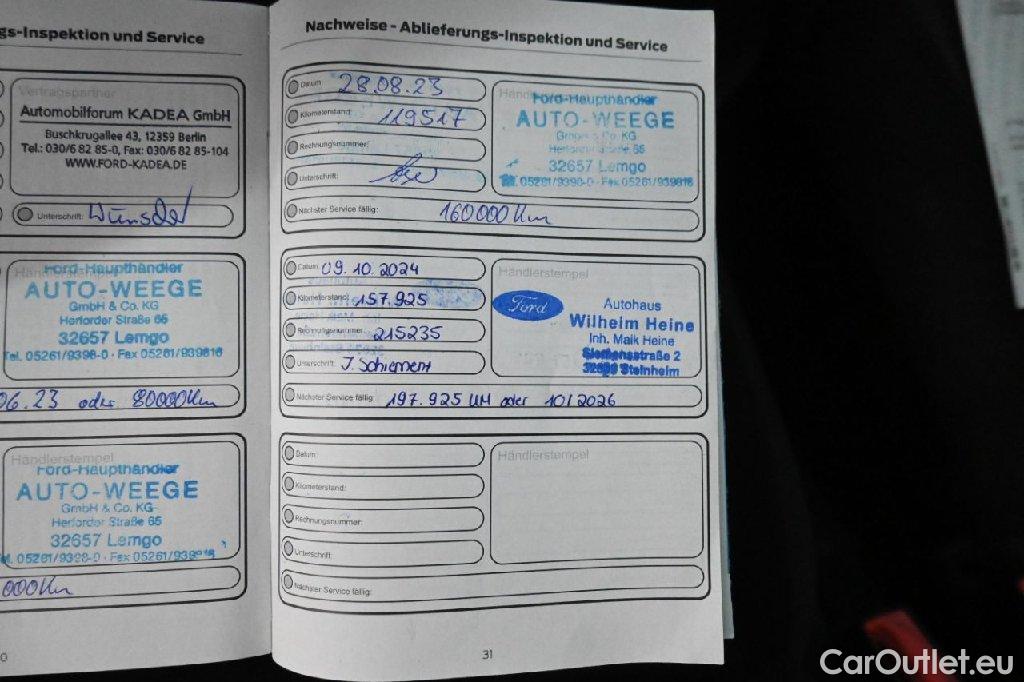 gs-Inspektion und Service
Vertragspartner
Automobilforum KADEA GmbH
Buschkrugallee 43, 12359 Berlin
Tel.: 030/6 82 85-0, Fax: 030/6 82 85-104
WWW.FORD-KADEA.DE
Unterschrift:
Händlerstempel
Ford-Haupthändler
AUTO-WEEGE
GmbH & Co. KG
Herforder Straße 65
32657 Lemgo
Tel. 05261/9398-0 · Fax 05261/939816
06.23 oder 80000Km
Händlerstempel
Ford-Haupthändler
AUTO-WEEGE
GmbH & Co. KG
Herforder Straße 65
32657 Lemgo
Tel. 05261/9398-0 · Fax 05261/939816
000Km
Nachweise - Ablieferungs-Inspektion und Service
Datum: 28.08.23
Kilometerstand: 119517
Rechnungsnummer:
Unterschrift:
Nächster Service fällig: 160000Km
Ford-Haupthändler
AUTO-WEEGE
GmbH & Co. KG
Herforder Straße 65
32657 Lemgo
05261/9398-0 · Fax 05261/939816
Datum: 09.10.2024
Kilometerstand: 157.925
Rechnungsnummer: 215235
Unterschrift: J. Schiement
Nächster Service fällig: 197.925 KM oder 10/2026
Händlerstempel
Ford
Autohaus
Wilhelm Heine
Inh. Maik Heine
Siemensstraße 2
Steinheim
Datum:
Kilometerstand:
Rechnungsnummer:
Unterschrift:
Nächster Service fällig:
Händlerstempel
31
CarOutlet.eu